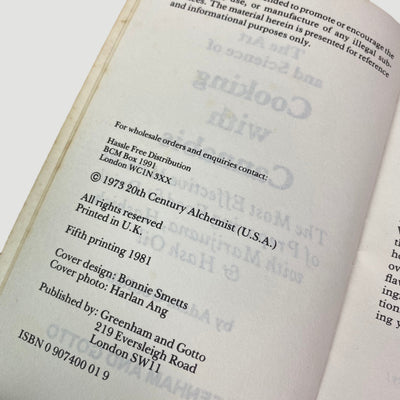 nded to promote or encourage the
use, or manufacture of any illegal sub-
ces. The material herein is presented for reference
and informational purposes only.
For wholesale orders and enquiries contact:
Hassle Free Distribution
BCM Box 1991
London WC1N 3XX
© 1973 20th Century Alchemist (U.S.A.)
All rights reserved
Printed in U.K.
Fifth printing 1981
Cover design: Bonnie Smetts
Cover photo: Harlan Ang
Published by: Greenham and Gotto
219 Eversleigh Road
London SW11
ISBN 0 907400 01 9
The Art
and Science of
Cooking
with
Cannabis
The Most Effective
with Marijuana
& Hash Oil